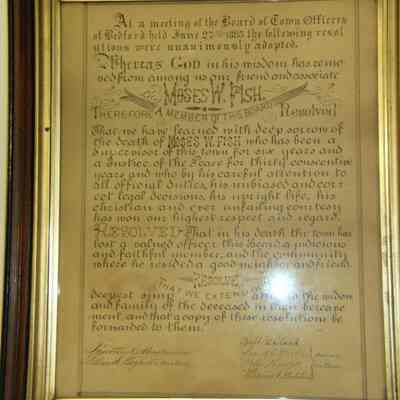 At a meeting of the Board of Town Officers
of Bedford held June 27th 1885 the following resol
utions were unanimously adopted.
Whereas God in his wisdom has remo
ved from among us our friend and associate
MOSES W. FISH.
A MEMBER OF THIS BOARD
THEREFORE Resolved
That we have learned with deep sorrow of
the death of MOSES W. FISH who has been a
Supervisor of this town for six years and
a Justice of the Peace for thirty consecutive
years and who by his careful attention to
all official duties, his unbiased and corr
ect legal decisions, his upright life, his
christian and ever unfailing courtesy
has won our highest respect and regard.
RESOLVED That in his death the town has
lost a valued officer this Board a judicious
and faithful member, and the community
where he resided a good neighbor and friend.
RESOLVED
THAT WE EXTEND
deepest sym to the widow
and family of the deceased in their bereave
ment, and that a copy of these resolutions be
forwarded to them.